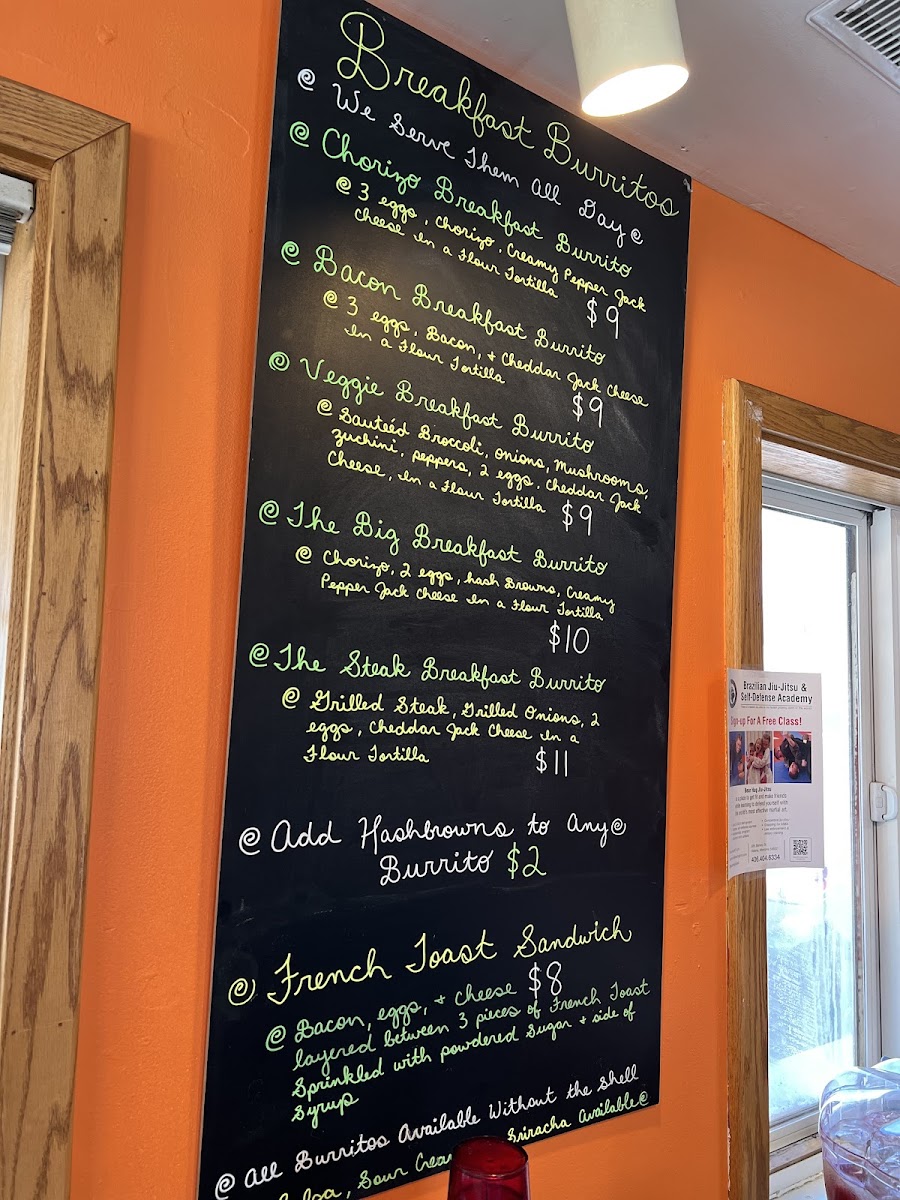 Breakfast Burritos
@ We Serve Them all Day @
@ Chorizo Breakfast Burrito
@ 3 eggs, Chorizo, Creamy Pepper Jack
Cheese In a Flour Tortilla
$9
@ Bacon Breakfast Burrito
@ 3 eggs, Bacon, + Cheddar Jack Cheese
In a Flour Tortilla
$9
@ Veggie Breakfast Burrito
@ Sauteéd Broccoli, onions, Mushrooms,
zuchini, peppers, 2 eggs, Cheddar Jack
Cheese, In a Flour Tortilla $9
@ The Big Breakfast Burrito
@ Chorizo, 2 eggs, hash Browns, Creamy
Pepper Jack Cheese In a Flour Tortilla
$10
@ The Steak Breakfast Burrito
@ Grilled Steak, Grilled Onions, 2
eggs, Cheddar Jack Cheese In a
Flour Tortilla $11
@ Add Hashbrowns to Any @
Burrito $2
@ French Toast Sandwich
$8
@ Bacon, eggs, + cheese
layered between 3 pieces of French Toast
Sprinkled with powdered Sugar + side of
Syrup
@ All Burritos Available Without the Shell
Sour Sriracha Available @
Brazilian Jiu-Jitsu &
Self-Defense Academy
Sign-up For A Free Class!
Bear Hug Jiu-Jitsu
406.464.6334